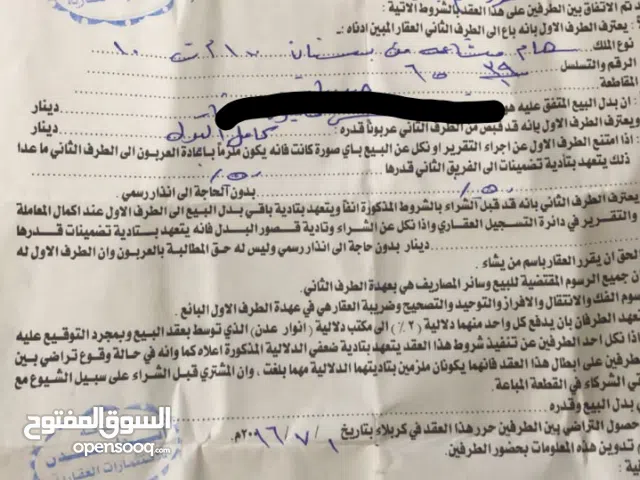 تم الاتفاق بين الطرفين على هذا العقد بالشروط الآتية :
يعترف الطرف الاول بانه باع الى الطرف الثاني العقار المبين ادناه :-
نوع الملك من بستان
الرقم والتسلسل
المقاطعة
ان بدل البيع المتفق عليه هو دينار
ويعترف الطرف الاول بانه قد قبض من الطرف الثاني عربوناً قدره دينار
اذا امتنع الطرف الاول عن اجراء التقرير او نكل عن البيع باي صورة كانت فانه يكون ملزماً باعادة العربون الى الطرف الثاني ما عدا
ذلك يتعهد بتأدية تضمينات الى الفريق الثاني قدرها
بدون الحاجة الى انذار رسمي .
يعترف الطرف الثاني بانه قد قبل الشراء بالشروط المذكورة انفاً ويتعهد بتادية باقي بدل البيع الى الطرف الاول عند اكمال المعاملة
والتقرير في دائرة التسجيل العقاري واذا نكل عن الشراء وتادية قصور البدل فانه يتعهد بتادية تضمينات قدرها
دينار بدون حاجة الى انذار رسمي وليس له حق المطالبة بالعربون وان الطرف الاول له
الحق ان يقرر العقار باسم من يشاء .
ن جميع الرسوم المقتضية للبيع وسائر المصاريف هي بعهدة الطرف الثاني.
سوم الفك والانتقال والافراز والتوحيد والتصحيح وضريبة العقار هي في عهدة الطرف الاول البائع .
تعهد الطرفان بان يدفع كل واحد منهما دلالية (٢٪) الى مكتب دلالية (انوار عدن) الذي توسط بعقد البيع وبمجرد التوقيع عليه
اذا نكل احد الطرفين عن تنفيذ شروط هذا العقد يتعهد بتادية ضعفي الدلالية المذكورة اعلاه كما وانه في حالة وقوع تراضي بين
طرفين على ابطال هذا العقد فانهما يكونان ملزمين بتاديتهما الدلالية مهما بلغت ، وان المشتري قبل الشراء على سبيل الشيوع مع
في الشركاء في القطعة المباعة .
بدل البيع وقدره
حصول التراضي بين الطرفين حرر هذا العقد في كربلاء بتاريخ ١ / ٧ / ٢٠١٦م.
م تدوين هذه المعلومات بحضور الطرفين.
السوق المفتوح
opensooq.com